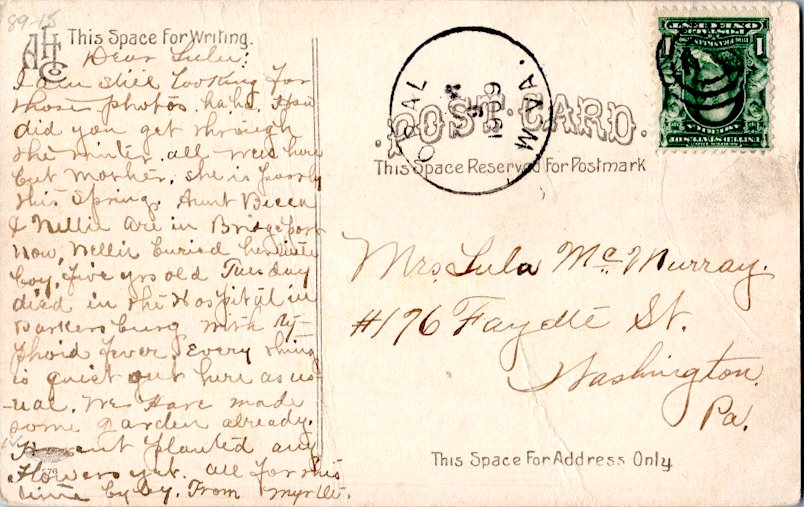 89-15
AHCo
This Space For Writing.
Dear Lulu;
I am still looking for
those photos, haha. How
did you get through
the winter. all well here
but Mother. she is poorly
this Spring. Aunt Becca
& Nellie are in Bridgeport
now, Nellie buried her little
boy, five yrs old Tuesday
died in the Hospital in
Parkersburg with Ty-
phoid fever. Every thing
is quiet out here as us-
-ual. We Have made
some garden already.
Havent planted any
flowers yet. all for this
time by by. From Myrtle.
POST CARD.
This Space Reserved For Postmark
OPAL
1909
W.VA.
POSTAGE
ONE CENT
1 1
Mrs. Lula McMurray.
#176 Fayette St.
Washington
Pa.
This Space For Address Only